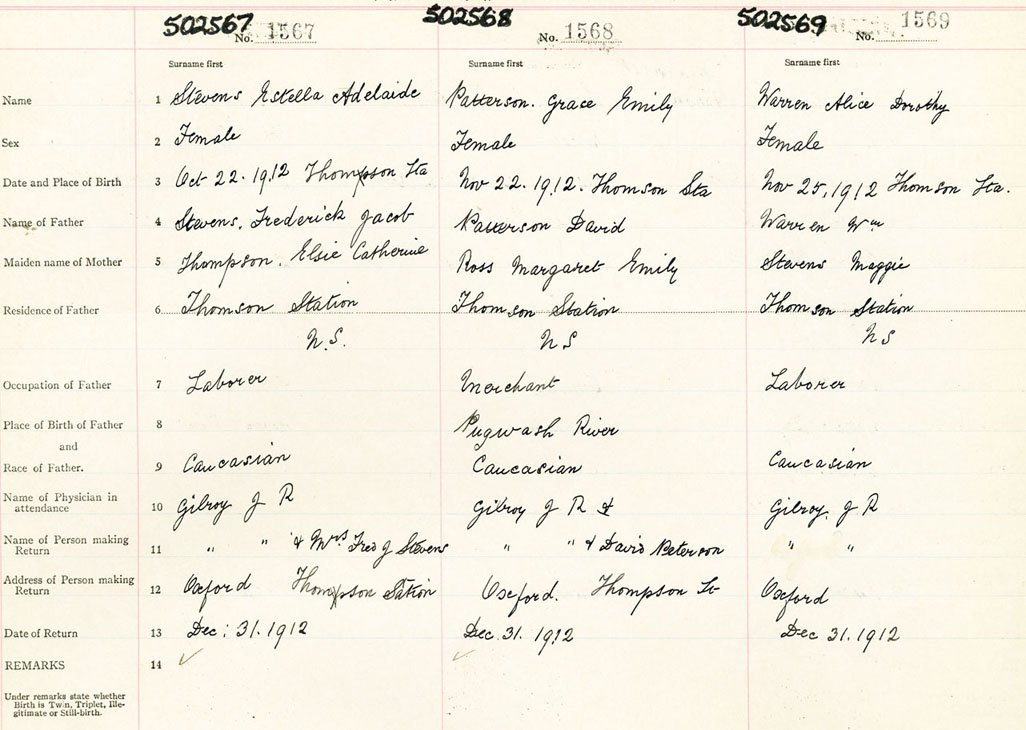 502567 No. 1567 502568 No. 1568 502569 No. 1569
Surname first Surname first Surname first
Name 1 Stevens Estella Adelaide Patterson. Grace Emily Warren Alice Dorothy
Sex 2 Female Female Female
Date and Place of Birth 3 Oct 22. 1912 Thompson Sta Nov 22. 1912. Thomson Sta Nov 25, 1912 Thomson Sta.
Name of Father 4 Stevens, Frederick Jacob Patterson David Warren Wm
Maiden name of Mother 5 Thompson. Elsie Catherine Ross Margaret Emily Stevens Maggie
Residence of Father 6 Thomson Station Thomson Station Thomson Station
N.S. N S N S
Occupation of Father 7 Laborer Merchant Laborer
Place of Birth of Father 8 Pugwash River
and
Race of Father. 9 Caucasian Caucasian Caucasian
Name of Physician in
attendance 10 Gilroy J R Gilroy J R & Gilroy, J R
Name of Person making
Return 11 " " & Mrs Fred J Stevens " " & David Peterson " "
Address of Person making
Return 12 Oxford Thompson Station Oxford. Thompson St Oxford
Date of Return 13 Dec; 31. 1912 Dec. 31. 1912 Dec 31. 1912
REMARKS 14 ✓ ✓
Under remarks state whether
Birth is Twin, Triplet, Ille-
gitimate or Still-birth.